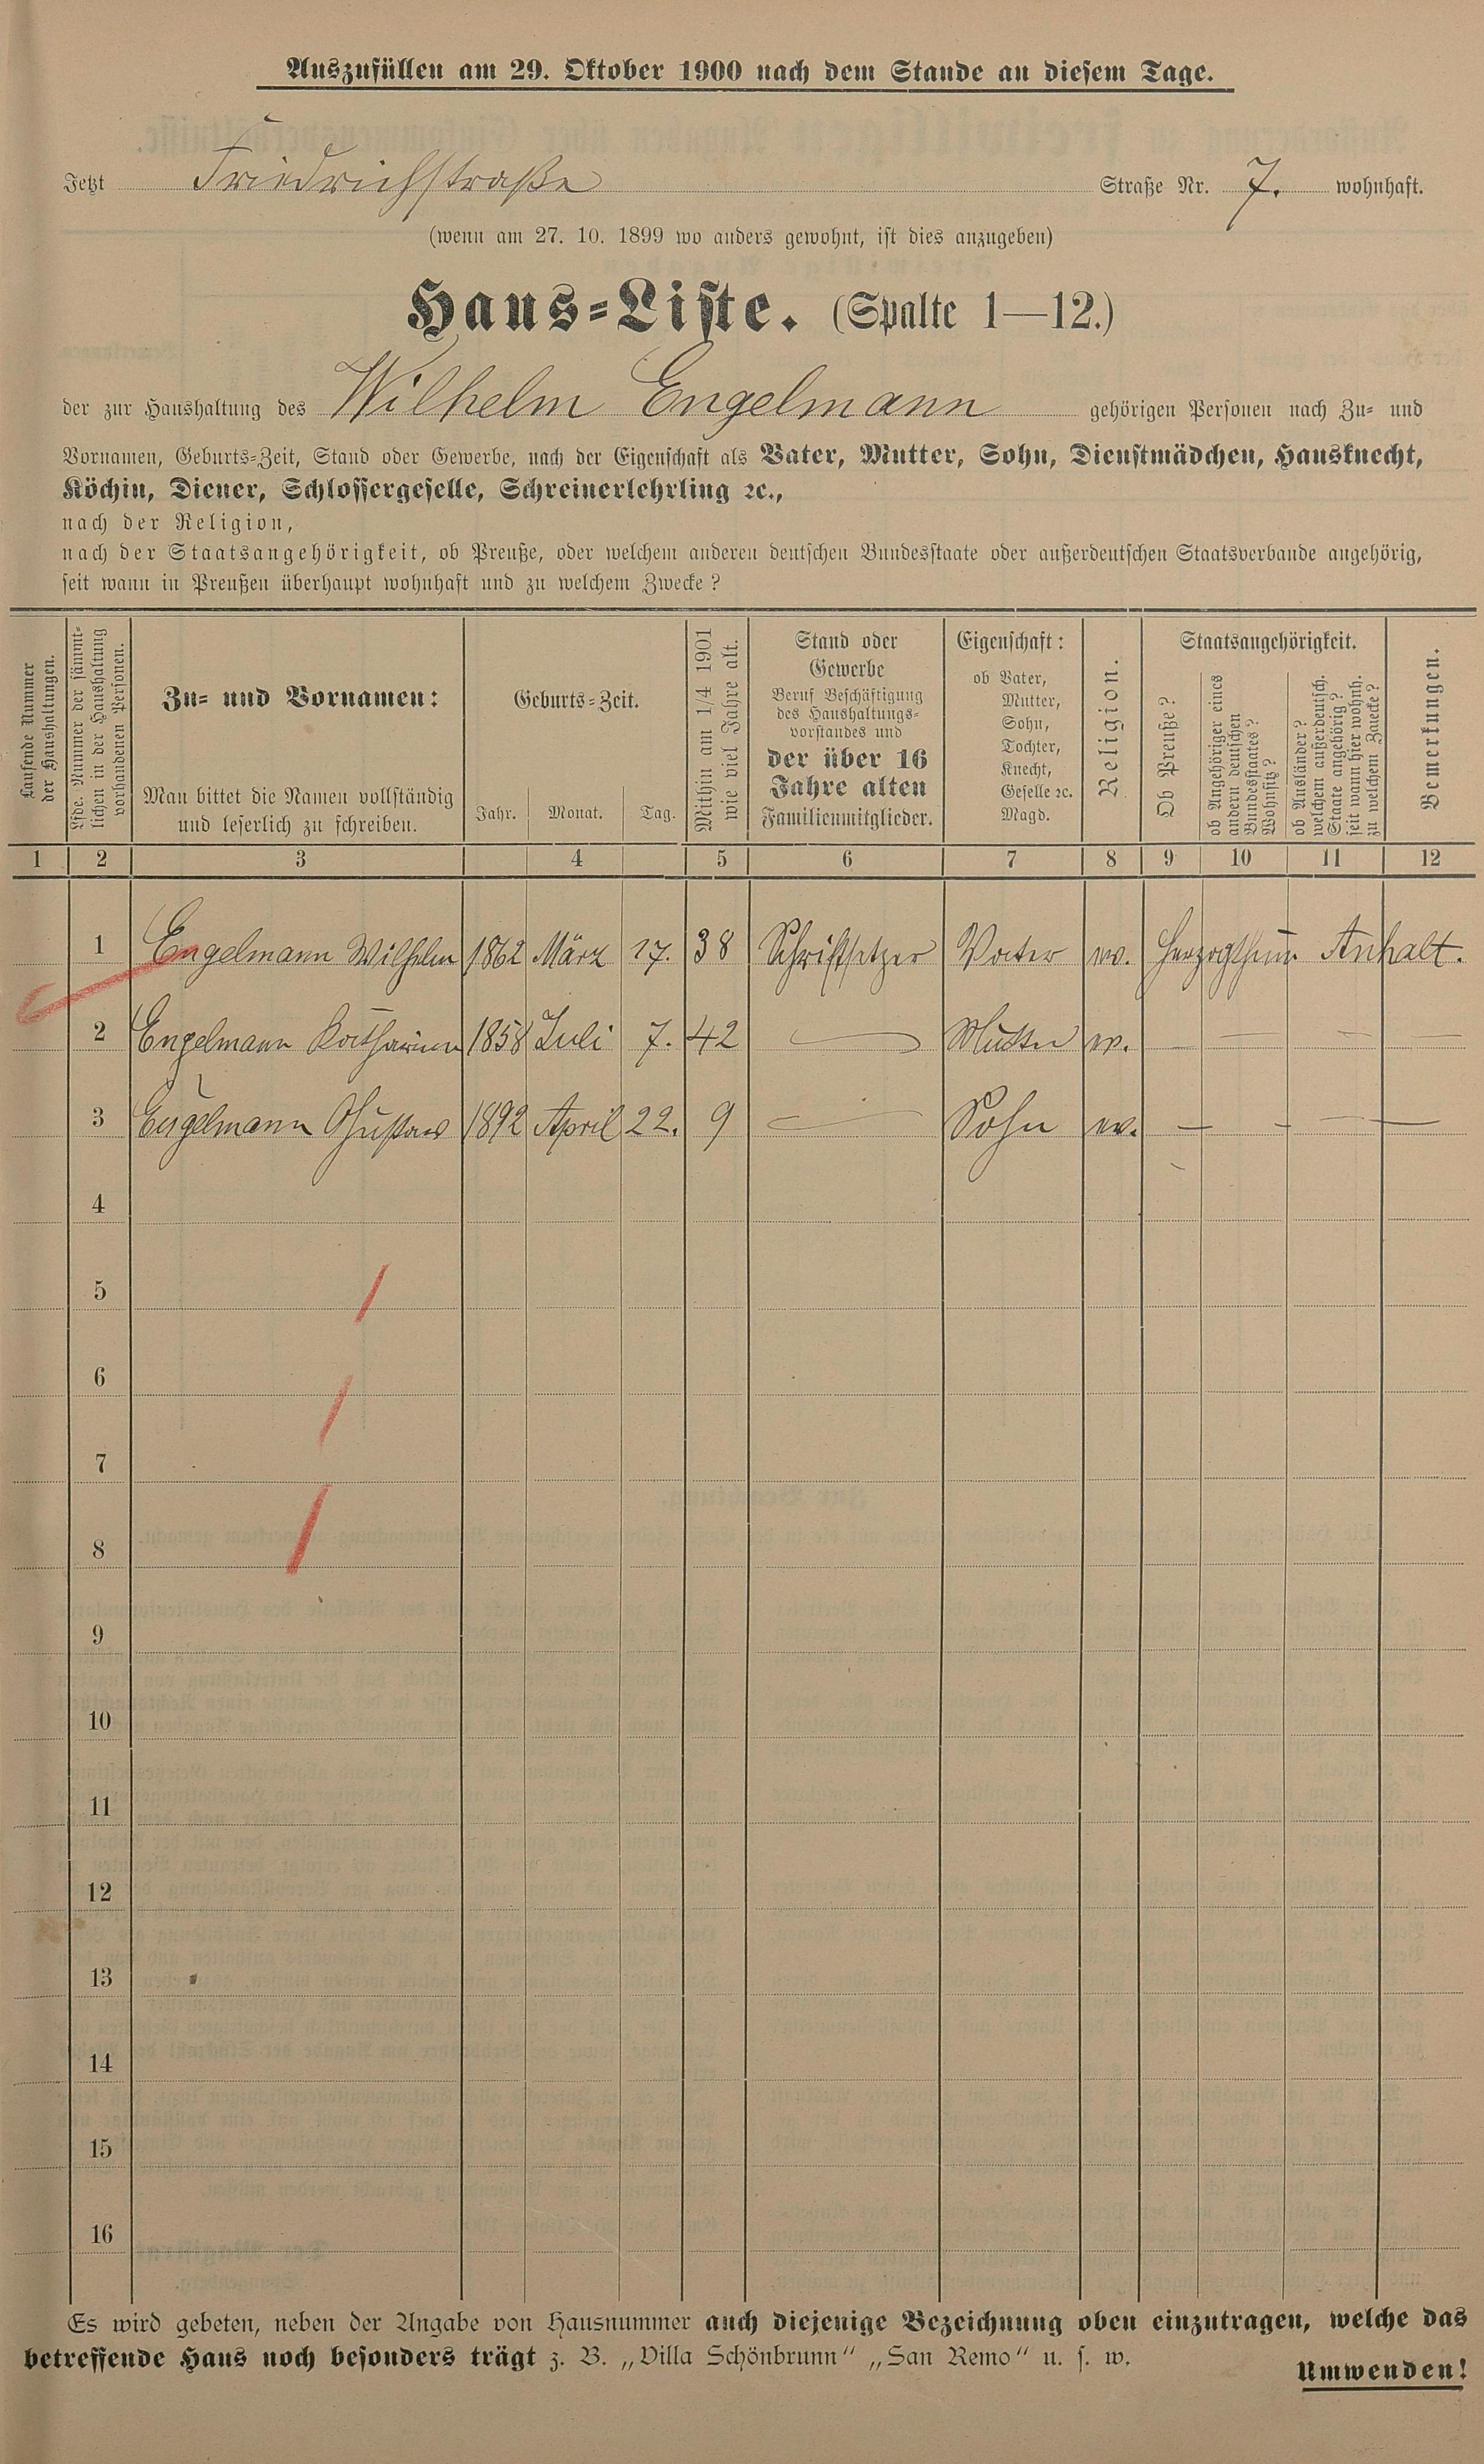 Auszufüllen am 29. Oktober 1900 nach dem Stande an diesem Tage.
Jetzt Friedrichstraße Straße Nr. 7. wohnhaft.
(wenn am 27. 10. 1899 wo anders gewohnt, ist dies anzugeben)
Haus-Liste. (Spalte 1—12.)
der zur Haushaltung des Wilhelm Engelmann gehörigen Personen nach Zu- und
Vornamen, Geburts-Zeit, Stand oder Gewerbe, nach der Eigenschaft als Vater, Mutter, Sohn, Dienstmädchen, Hausknecht,
Köchin, Diener, Schlossergeselle, Schreinerlehrling ꝛc.,
nach der Religion,
nach der Staatsangehörigkeit, ob Preuße, oder welchem anderen deutschen Bundesstaate oder außerdeutschen Staatsverbande angehörig,
seit wann in Preußen überhaupt wohnhaft und zu welchem Zwecke?
Laufende Nummer
der Haushaltungen.
Lfde. Nummer der sämmt-
lichen in der Haushaltung
vorhandenen Personen.
Zu- und Vornamen:
Man bittet die Namen vollständig
und leserlich zu schreiben.
Geburts-Zeit.
Jahr. Monat. Tag.
Mithin am 1/4 1901
wie viel Jahre alt.
Stand oder
Gewerbe
Beruf Beschäftigung
des Haushaltungs-
vorstandes und
der über 16
Jahre alten
Familienmitglieder.
Eigenschaft:
ob Vater,
Mutter,
Sohn,
Tochter,
Knecht,
Geselle ꝛc.
Magd.
Religion.
Staatsangehörigkeit.
Ob Preuße?
ob Angehöriger eines
andern deutschen
Bundesstaates?
Wohnsitz?
ob Ausländer?
welchem außerdeutsch.
Staate angehörig?
seit wann hier wohnh.
zu welchem Zwecke?
Bemerkungen.
1 2 3 4 5 6 7 8 9 10 11 12
1 Engelmann Wilhelm 1862 März 17. 38 Schriftsetzer Vater ev. Herzogthum Anhalt.
2 Engelmann Katharina 1858 Juli 7. 42 — Mutter ev. — — — —
3 Engelmann Gustav 1892 April 22. 9 — Sohn ev. — - — —
4
5
6
7
8
9
10
11
12
13
14
15
16
Es wird gebeten, neben der Angabe von Hausnummer auch diejenige Bezeichnung oben einzutragen, welche das
betreffende Haus noch besonders trägt z. B. „Villa Schönbrunn“ „San Remo“ u. s. w.
Umwenden!